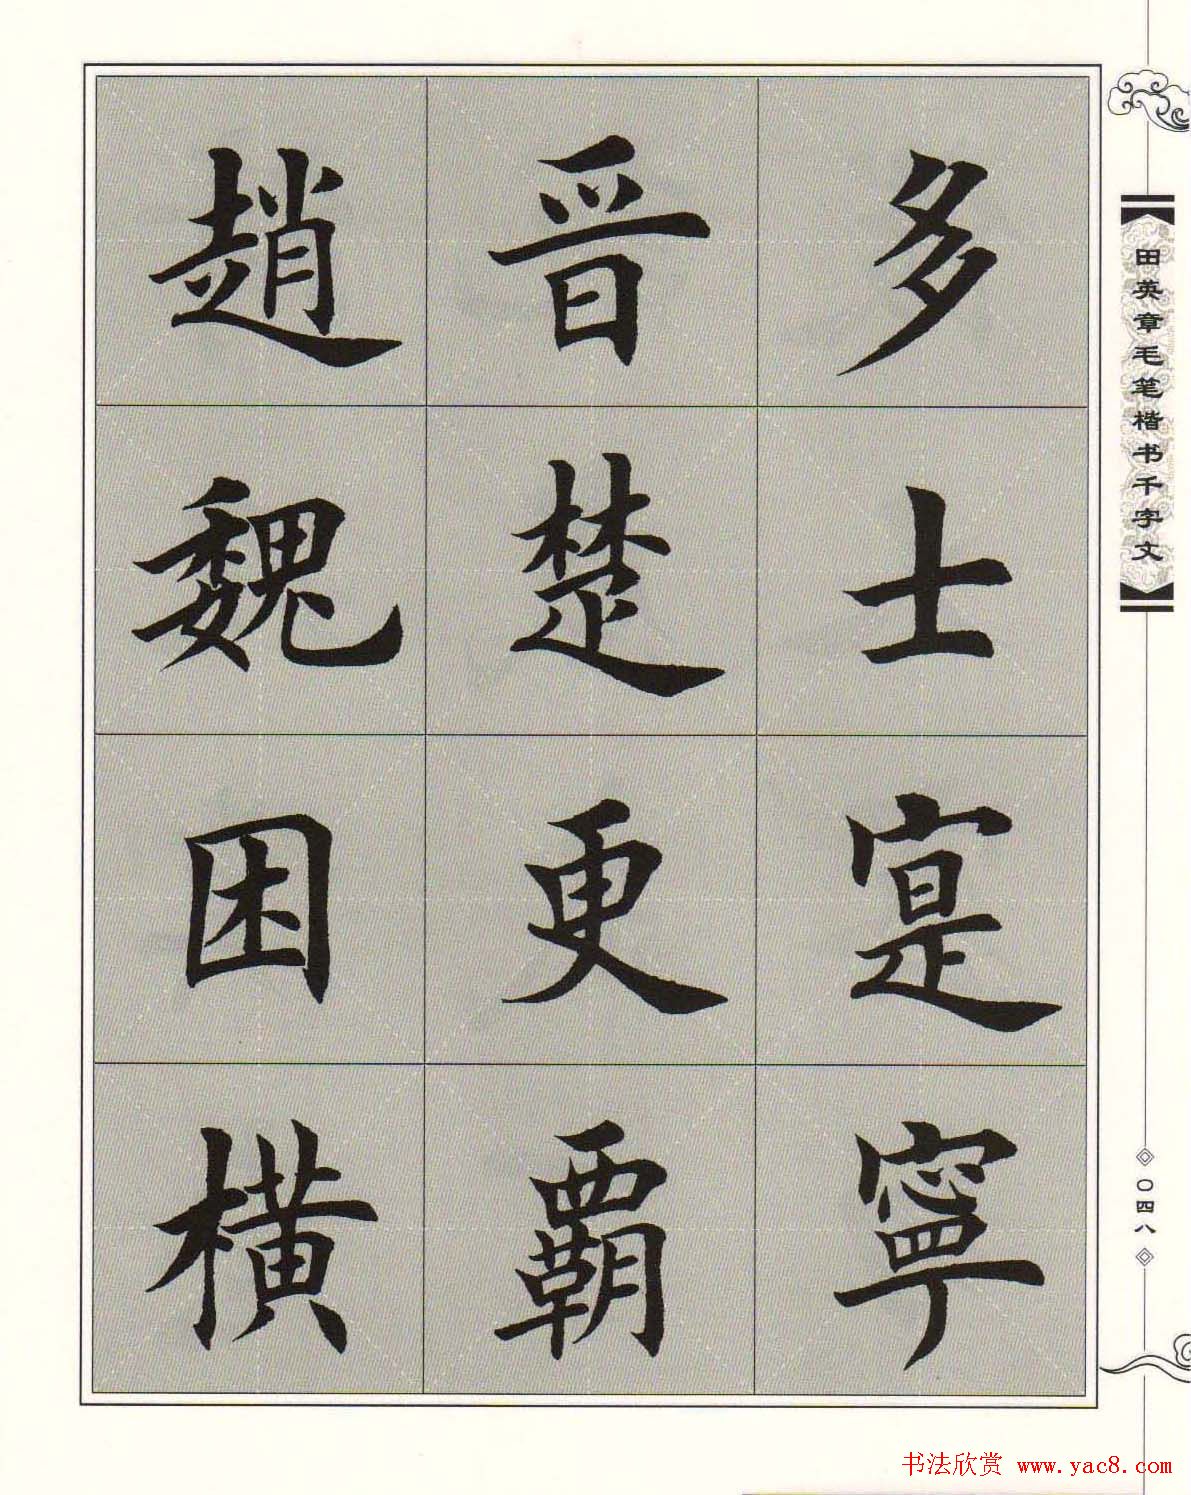 多士寔寧
晋楚更霸
趙魏困横
田英章毛笔楷书千字文
〇四八
书法欣赏 www.yac8.com